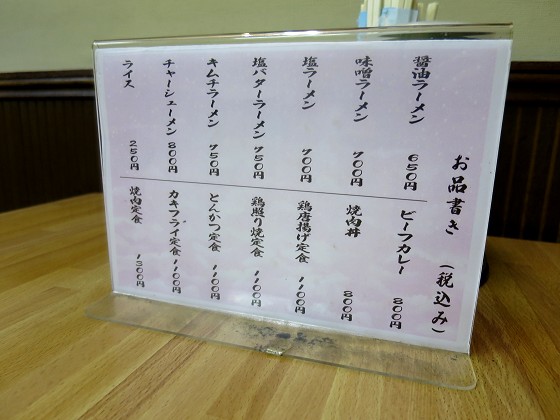 お品書き（税込み）
醤油ラーメン 650円
味噌ラーメン 700円
塩ラーメン 700円
塩バターラーメン 750円
キムチラーメン 750円
チャーシューメン 800円
ライス 250円
ビーフカレー 800円
焼肉丼 800円
鶏唐揚げ定食 1100円
鶏照り焼定食 1100円
とんかつ定食 1100円
カキフライ定食 1100円
焼肉定食 1300円